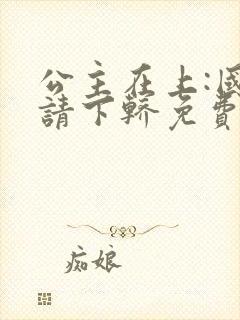 公主在上:國
請下轎免費
痴娘